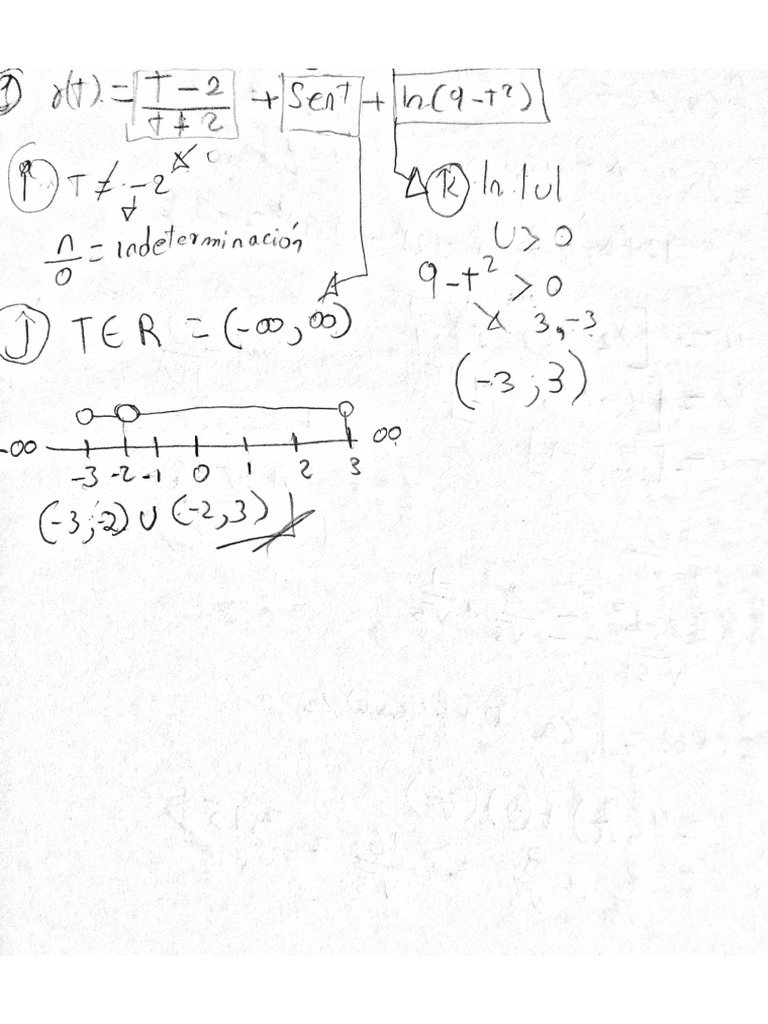 ① r(t) = T-2/t+2 + Sent + ln(9-t²)
î T ≠ -2
n/0 = indeterminación
ĵ T ∈ R = (-∞, ∞)
k̂ ln |u|
U > 0
9-t² > 0
3, -3
(-3, 3)
-∞ -3 -2 -1 0 1 2 3 ∞
(-3, -2) ∪ (-2, 3)